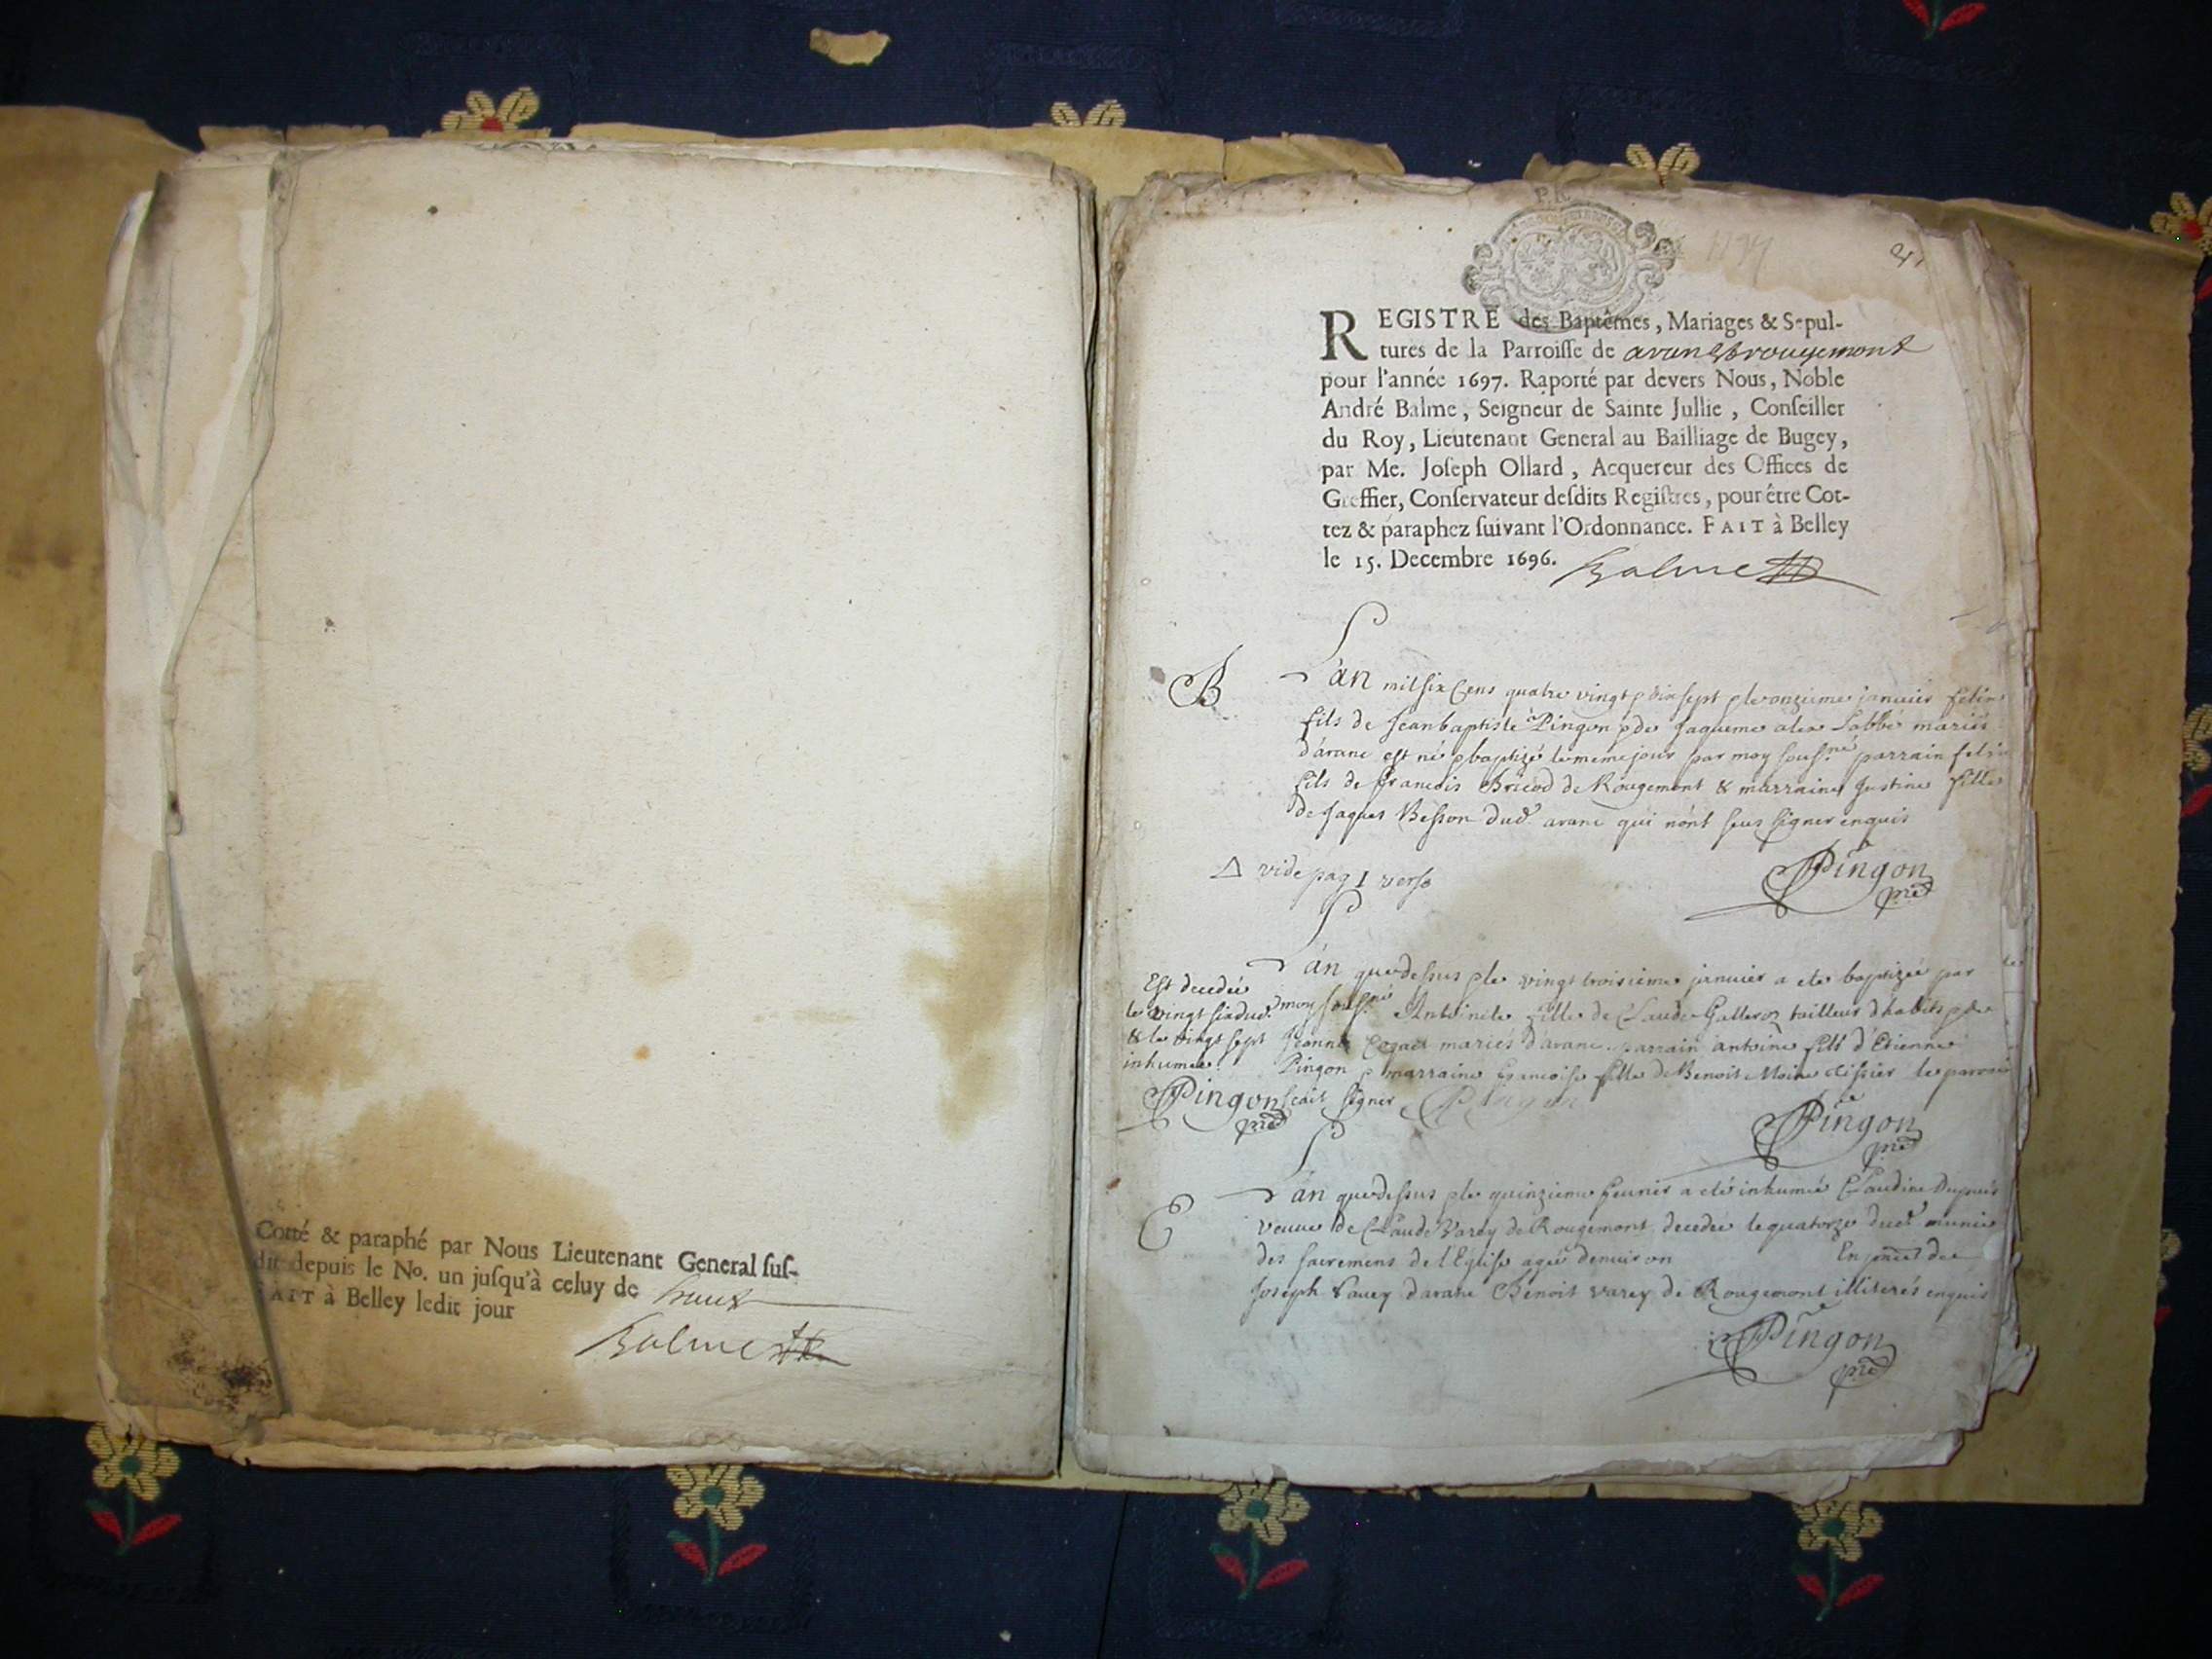 Cotté & paraphé par Nous Lieutenant General suſ-
dit depuis le No. un juſqu'à celuy de
FAIT à Belley ledit jour
Balme
REGISTRE des Baptêmes, Mariages & Sepul-
tures de la Parroiſſe de aranc & rougemont
pour l'année 1697. Raporté par devers Nous, Noble
André Balme, Seigneur de Sainte Jullie, Conſeiller
du Roy, Lieutenant General au Bailliage de Bugey,
par Me. Joſeph Ollard, Acquereur des Offices de
Greffier, Conſervateur deſdits Regiſtres, pour être Cot-
tez & paraphez ſuivant l'Ordonnance. FAIT à Belley
le 15. Decembre 1696. Balme
B
L'an mil six cens quatre vingt & dix sept & le onzieme januier felix
fils de Jean baptiste Pingon & de Jaqueme Labbé mariés
d'aranc est né & baptizé le meme jour par moy sousné parrain felix
fils de francois Bricod de Rougemont & marraine Justine fille
de Jaques Besson dud. aranc qui n'ont sceus signer enquis
Δ vide pag 1 verso
Pingon
L'an que dessus & le vingt troisieme januier a eté baptizée par
moy sousné Antoinete fille de Claude Galleron tailleur d'habits & de
Jeanne mariés d'aranc parrain antoine fils d'Etienne
Pingon & marraine francoise fille de Benoit Moine le parrain
scait signer Pingon
Est decedée
le vingt six dud.
& le vingt sept
inhumée
Pingon
Pingon
L'an que dessus & le quinzieme feurier a eté inhumée Claudine Dupuis
veuue de Claude Varey de Rougemont decedée le quatorze dud. munie
des sacremens de l'Eglise agée d'enuiron En de
Joseph d'aranc Benoit varey de Rougemont illiterés enquis
Pingon